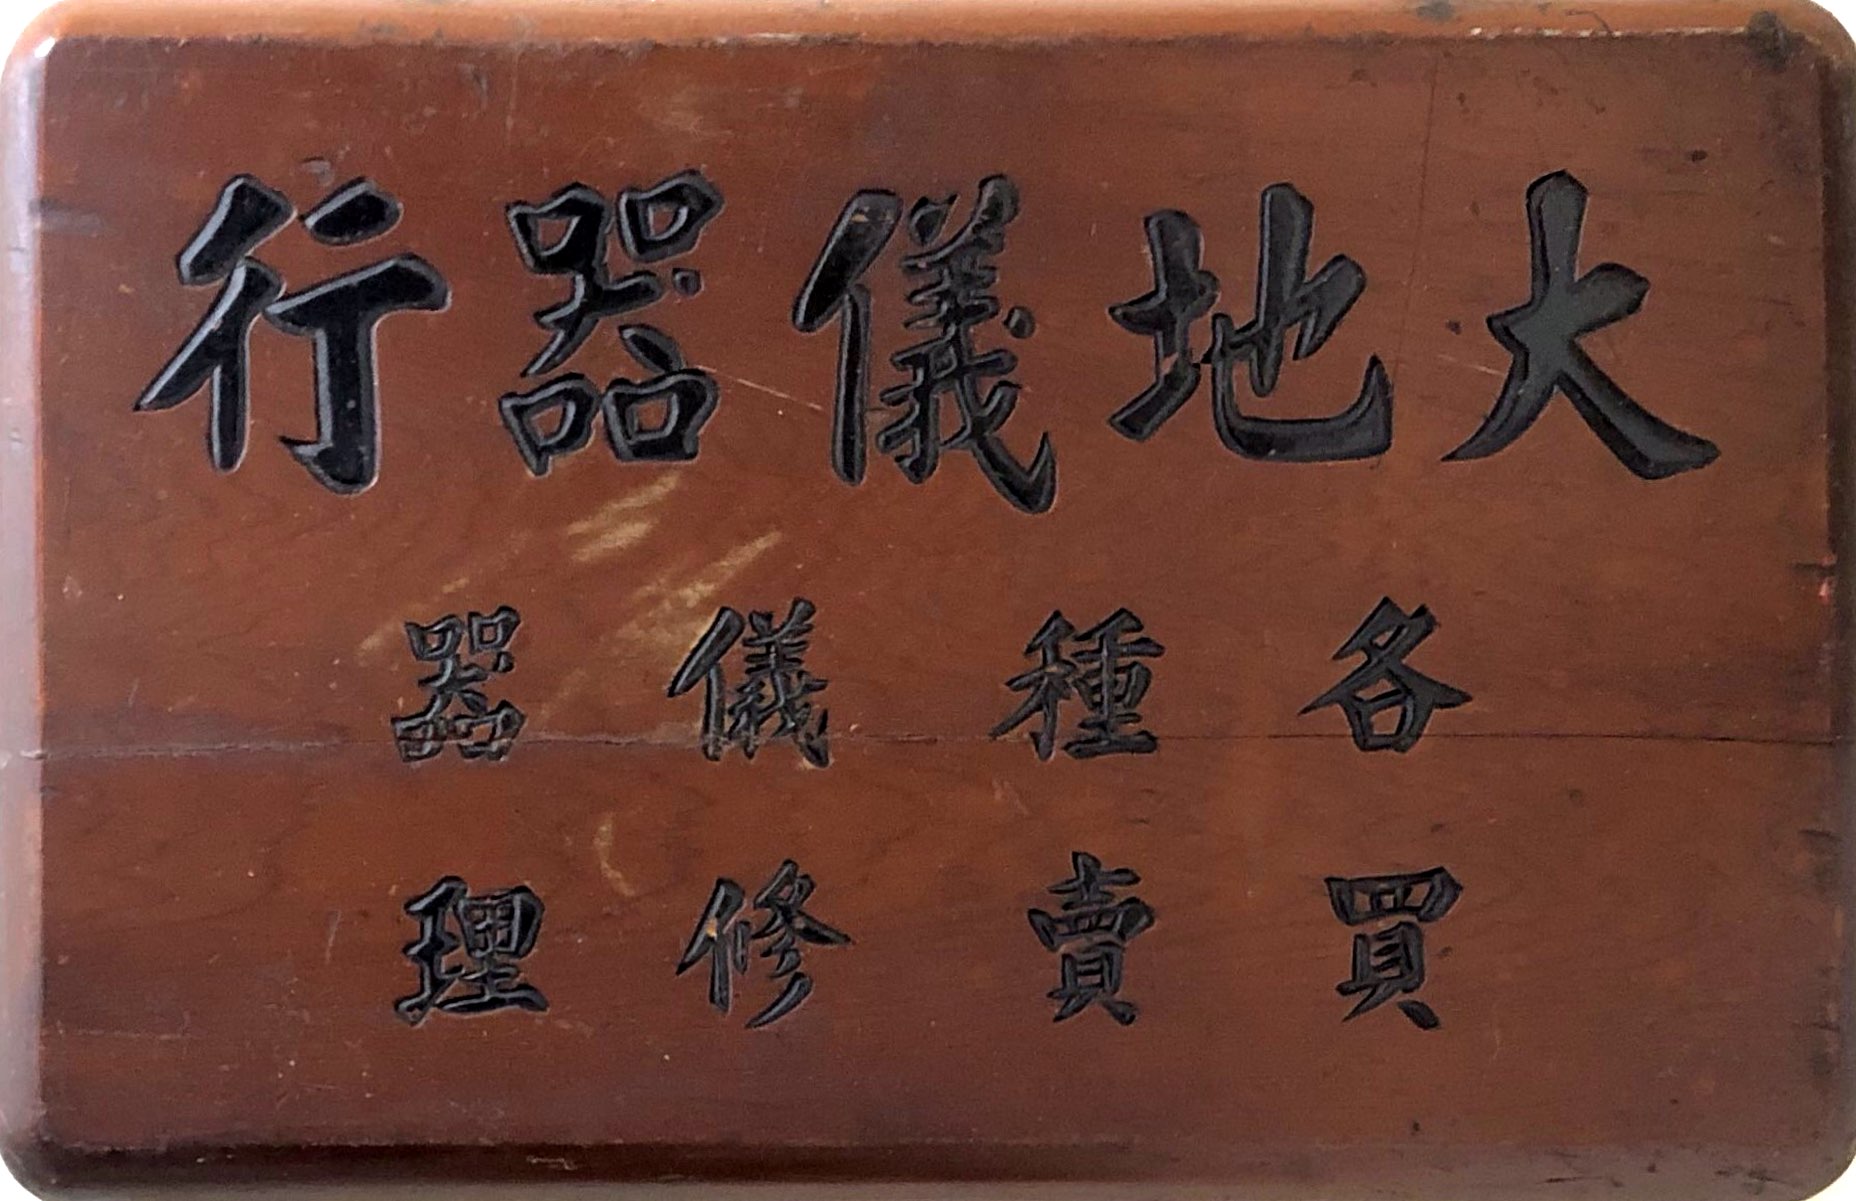 大地儀器行
各種儀器
買賣修理